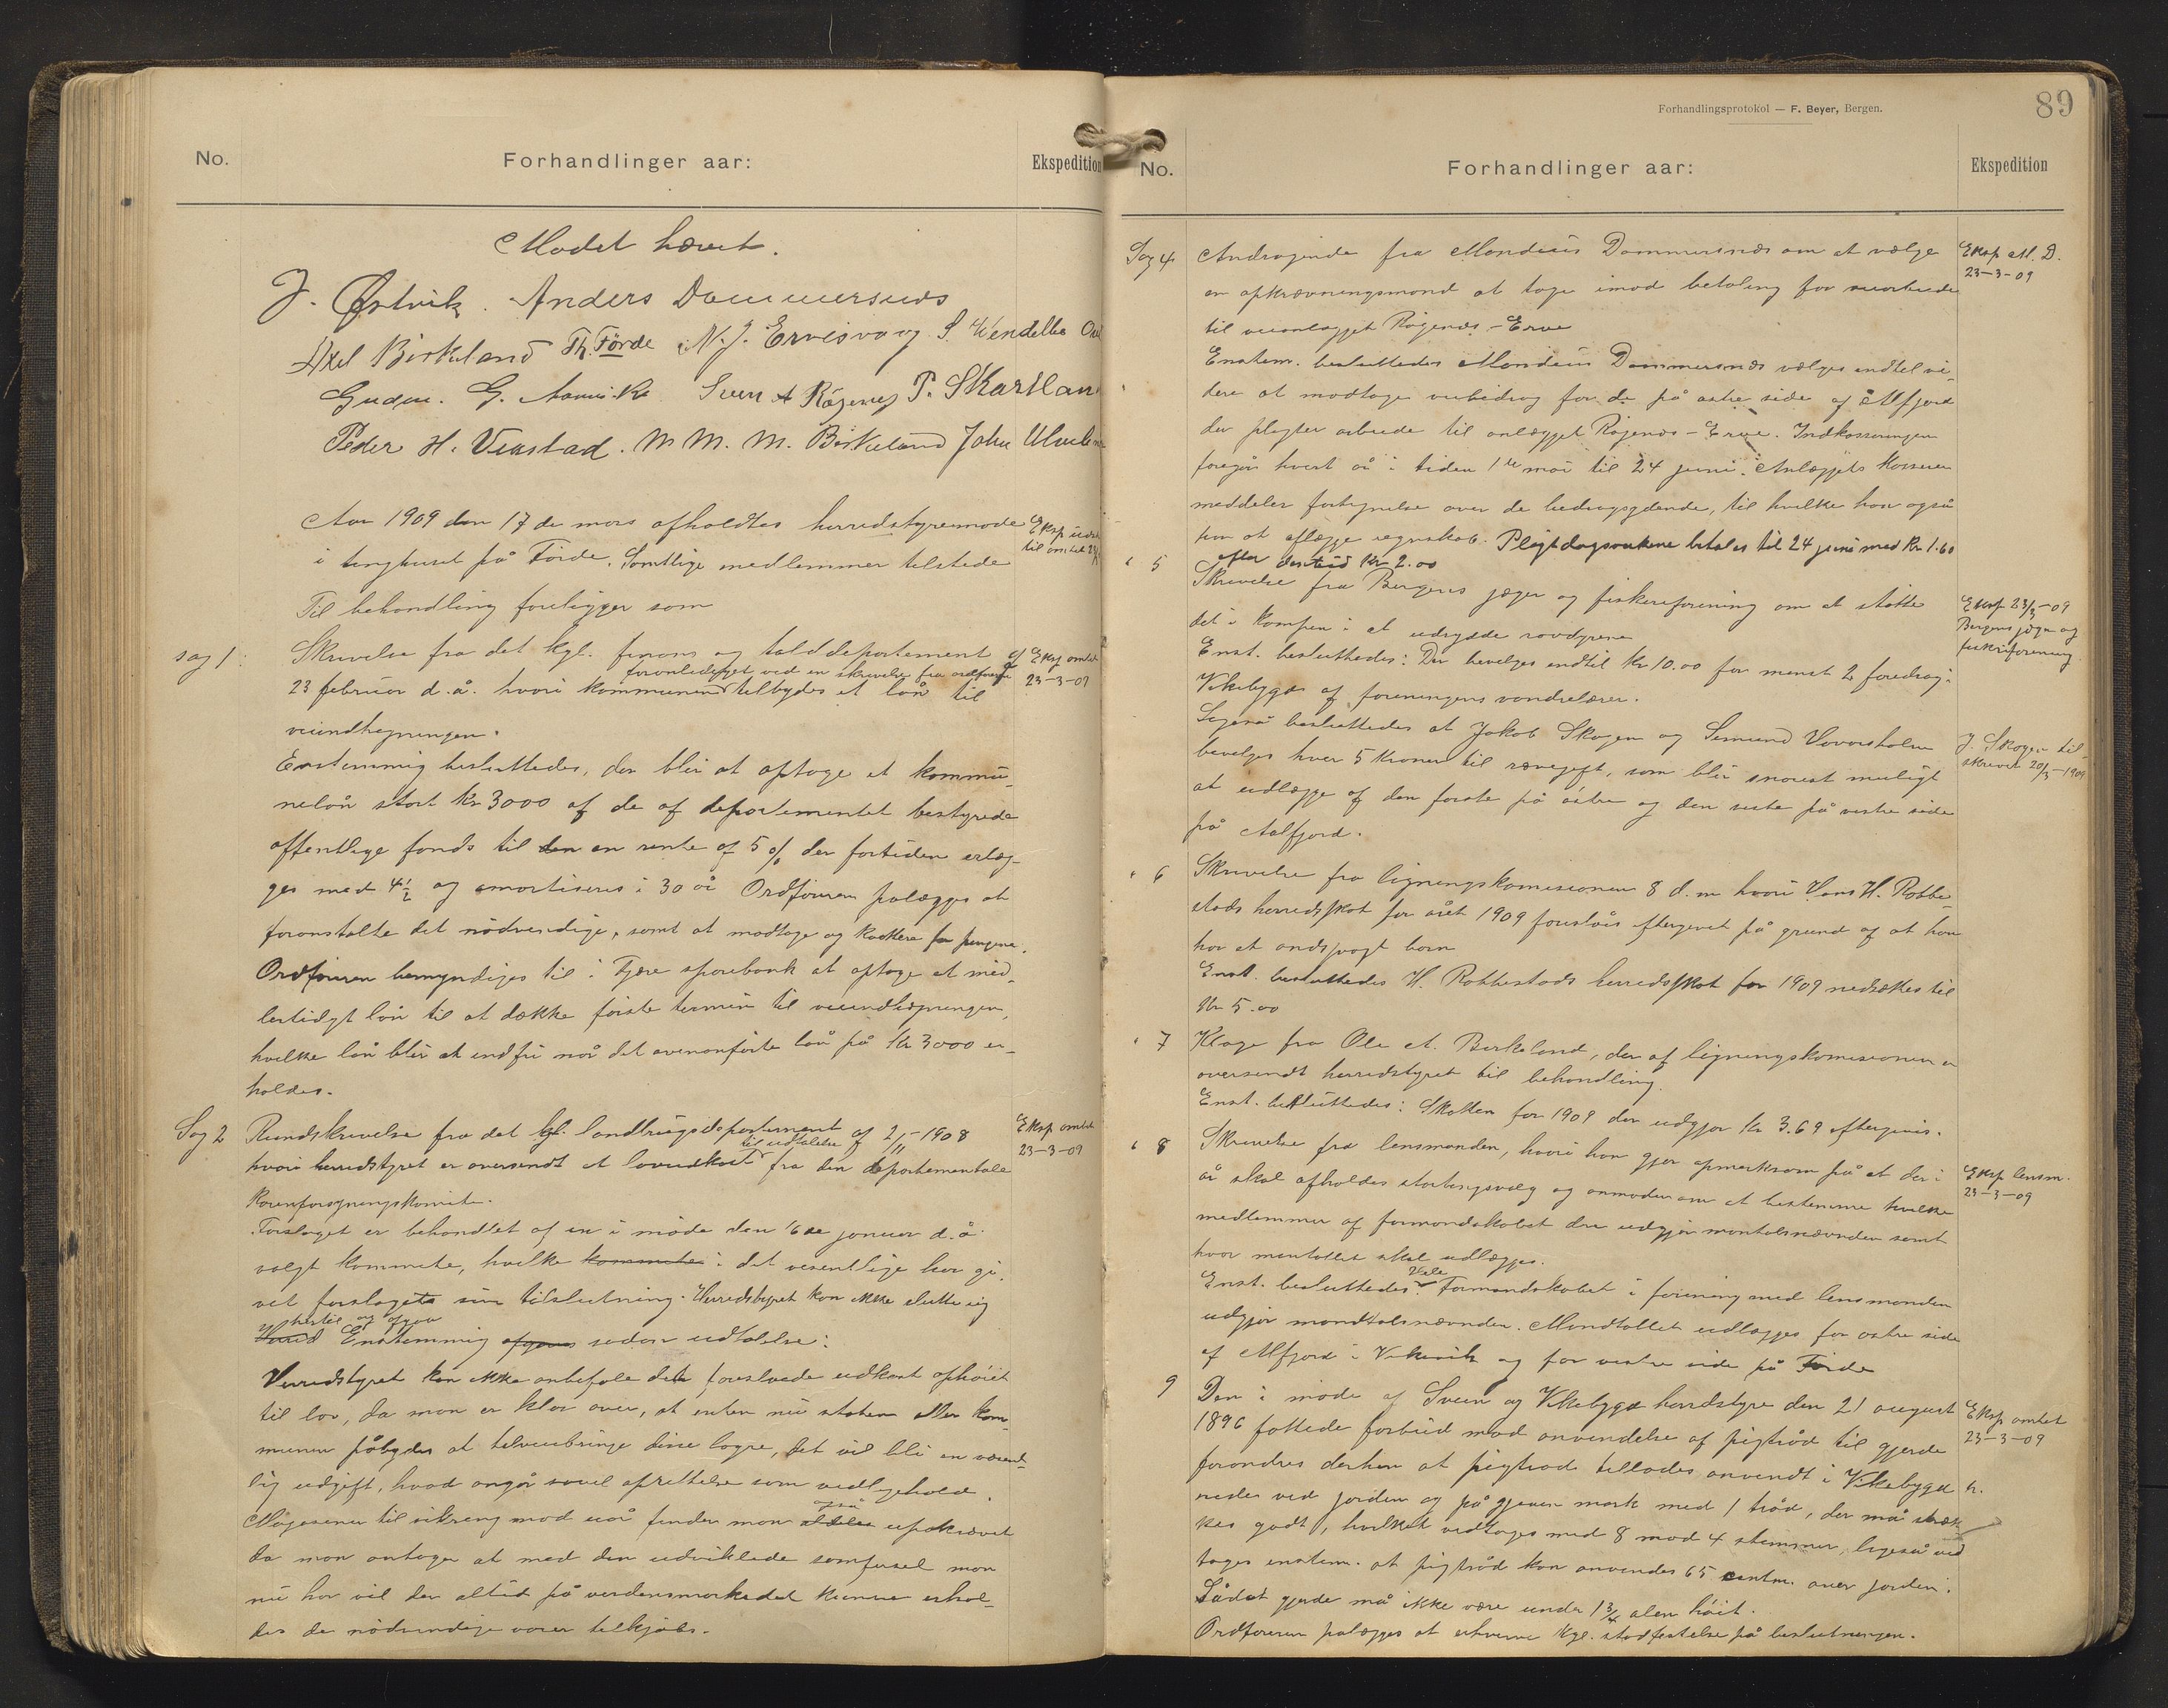 No.
Forhandlinger aar:
Ekspedition
Mødet hævet.
J. Østvik. Anders Dommersnes
Axel Birkeland Th. Förde N. J. Ervisvaag S. Wendelbo
Gudm. G. Sven A Røgenes P. Skartland
Peder H. Vikstad. M. M. Birkeland John
Aar 1909 den 17de mars afholdtes herredstyremøde
i tinghuset på Förde. Samtlige medlemmer tilstede
Eksp
til amtet
Til behandling foreligger som
sag 1:
Skrivelse fra det kgl. finans og tolddepartement af
foranlediget ved en skrivelse fra ordføreren
23 februar d.å. hvori kommunen tilbydes et lån til
veiindhegningen.
Eksp amtet
23-3-09
Enstemmig besluttedes, der blir at optage et kommu-
nelån stort kr 3000 af de af departementet bestyrede
offentlige fonds til den en rente af 5 % der fortiden erlæg-
ges med 4½ og amortiseres i 30 år Ordføreren pålægges at
foranstalte det nødvendige, samt at modtage og kvittere for pengene.
Ordføreren bemyndiges til i Fjære sparebank at optage et mid-
lertidigt lån til at dække første termin til veiindhegningen,
hvilke lån blir at indfri når det ovenanførte lån på kr 3000 er-
holdes.
Sag 2
Rundskrivelse fra det kgl. landbrugsdepartement af 2/11-1908
til udtalelse
hvori herredstyret er oversendt et lovudkast fra den departementale
Kornforsyningskomite.
Eksp amtet
23-3-09
Forslaget er behandlet af en i møde den 16de januar d.å
valgt kommite, hvilke kommiten i det væsentlige har gi-
vet forslaget sin tilslutning. Herredstyret kan ikke slutte sig
hertil og afgav
Enstemmig afgaves sådan udtalelse:
Herredstyret kan ikke anbefale det foreslåede udkast ophöiet
til lov, da man er klar over, at enten nu staten eller kom-
munen påbydes at tilveiebringe disse lagre, det vil bli en væsent-
lig udgift, hvad angår såvel oprettelse som vedligehold.
også
Magasiner til sikring mod uår finder man aldeles upåkrævet
da man antager at med den udviklede samfærsel man
nu har vil der altid på verdensmarkedet kunne erhol-
des de nödvendige varer tilkjøbs.
Forhandlingsprotokol — F. Beyer, Bergen.
89
No.
Forhandlinger aar:
Ekspedition
Sag 4
Andragende fra Mandius Dommersnes om at vælge
en opkrævningsmand at tage imod betaling for veiarbeide
til veianlægget Røgenes-Erve
Eksp M. D.
23-3-09
Enstem. besluttedes Mandius Dommersnes vælges indtil vi-
dere at modtage veibidrag for de på østre side af Ålfjord
der pligter arbeide til anlægget Røgenes-Erve. Indkasseringen
foregår hvert år i tiden 1ste mai til 24 juni. Anlæggets kasserer
meddeler fortegnelse over de bidragsydende, til hvilke han også
har at aflægge regnskab. Pligtdagsverkene betales til 24 juni med Kr 1.60
efter den tid Kr 2.00
" 5
Skrivelse fra Bergens jæger og fiskeriforening om at støtte
det i kampen i at udrydde rovdyrene
Enst. besluttedes: Der bevilges indtil kr 10.00 for mindst 2 foredrag i
Vikebygd af foreningens vandrelærer.
Eksp 23/3-09
Bergens jæger og
fiskeriforening
Ligeså besluttedes at Jakob Skogen og Semund Havarsholm
bevilges hver 5 kroner til rævegift, som blir snarest muligt
at udlægge af den første på østre og den siste på vestre side
på Aalfjord.
J. Skogen til
skrevet 20/3-1909
" 6
Skrivelse fra ligningskomisionen 8 d.m hvori Hans H. Robbe-
stads herredsskat for året 1909 foreslåes eftergivet på grund af at han
har et åndssvagt barn
Enst. besluttedes H. Robbestads herredsskat for 1909 nedsættes til
Kr 5.00
" 7
Klage fra Ole A. Birkeland, der af ligningskomisionen er
oversendt herredstyret til behandling.
Enst. besluttedes: Skatten for 1909 der udgjør kr 3.69 eftergives.
" 8
Skrivelse fra lensmanden, hvori han gjør opmerksom på at der i
år skal afholdes stortingsvalg og anmoder om at bestemme hvilke
medlemmer af formandskabet der udgjør mantalsnævnden samt
hvor mantallet skal udlægges.
Eksp lensm.
23-3-09
Hele
Enst. besluttedes: Formandskabet i forening med lensmanden
udgjør mandtalsnævnden. Mandtallet udlægges for østre side
af Ålfjord i Vikevik og for vestre side på Förde
9
Den i møde af Sveen og Vikebygd herredstyre den 21 august
1896 fattede forbud mod anvendelse af pigtråd til gjerde
forandres derhen at pigtråd tillades anvendt i Vikebygd h.
nede ved jorden og på gjerder mark med 1 tråd, der må stræk-
kes godt, hvilket vedtages med 8 mod 4 stemmer, ligeså ved
tages enstem. at pigtråd kan anvendes 65 centm. over jorden.
Sådat gjerde må ikke være under 1¾ alen höit.
Ordføreren pålægges at erhverve kgl. stadfestelse på beslutningen.
Eksp amtet
23-3-09